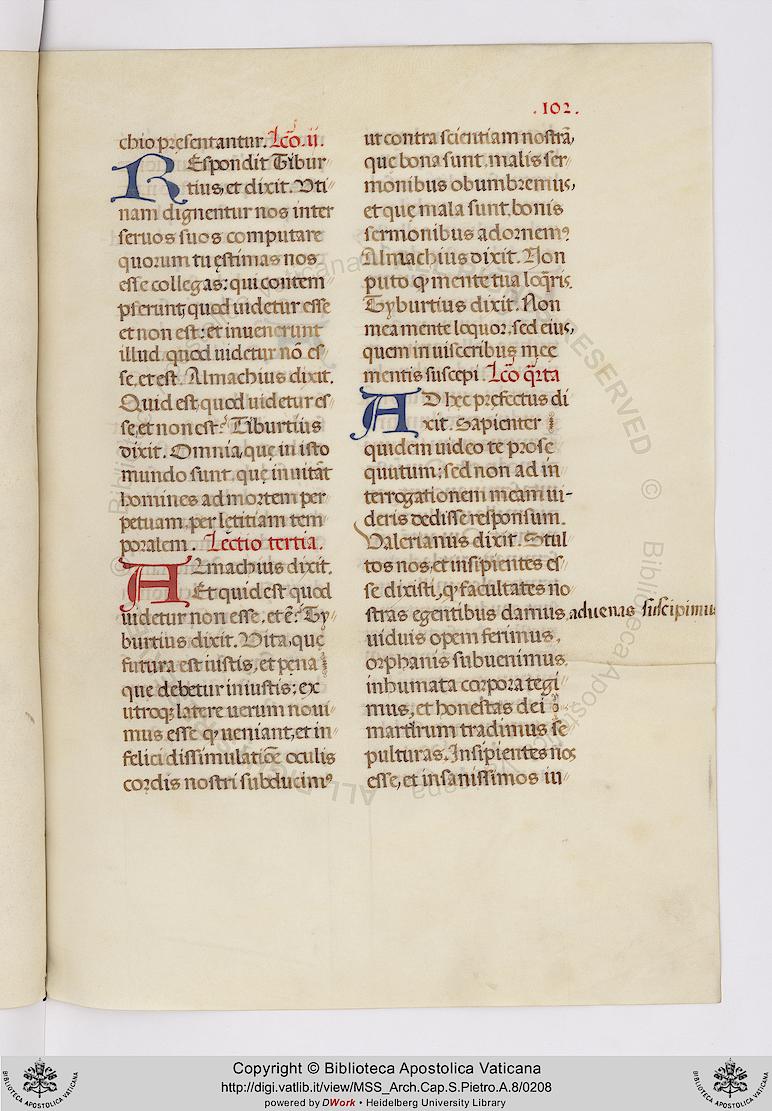 .102.
chio presentantur. Lcõ. ii.
REspondit Tibur
tius, et dixit. Vti
nam dignentur nos inter
seruos suos computare
quorum tu ęstimas nos
esse collegas: qui contem
pserunt quod uidetur esse
et non est: et inuenerunt
illud quod uidetur nõ es
se, et est. Almachius dixit.
Quid est quod uidetur es
se, et non est? Tiburtius
dixit. Omnia, quę in isto
mundo sunt, quę inuitãt
homines ad mortem per
petuam, per lętitiam tem
poralem. Lectio tertia.
ALmachius dixit.
Et quid est quod
uidetur non esse, et ẽ? Ty
burtius dixit. Vita, quę
futura est iustis, et pęna
que debetur iniustis: ex
utroqꝫ latere uerum noui
mus esse ꝙ ueniant, et in
felici dissimulatiõe oculis
cordis nostri subducimꝰ
ut contra scientiam nostrã,
que bona sunt, malis ser
monibus obumbremus,
et quę mala sunt, bonis
sermonibus adornemꝰ
Almachius dixit. Non
puto ꝙ mente tua loq̃ris.
Tyburtius dixit. Non
mea mente loquor, sed eius,
quem in uisceribus meę
mentis suscepi. Lcõ q̃rta
AD hęc prefectus di
xit. Sapienter
quidem uideo te prose
quutum: sed non ad in
terrogationem meam ui-
deris dedisse responsum.
Valerianus dixit. Stul
tos nos, et insipientes es
se dixisti, ꝙ facultates no
stras egentibus damus, aduenas suscipimus
uiduis opem ferimus,
orphanis subuenimus,
inhumata corpora tegi
mus, et honestas dei
martirum tradimus se
pulturas. Insipientes nos
esse, et insanissimos iu
Copyright © Biblioteca Apostolica Vaticana
http://digi.vatlib.it/view/MSS_Arch.Cap.S.Pietro.A.8/0208
powered by DWork • Heidelberg University Library
BIBLIOTECA APOSTOLICA VATICANA
BIBLIOTECA APOSTOLICA VATICANA